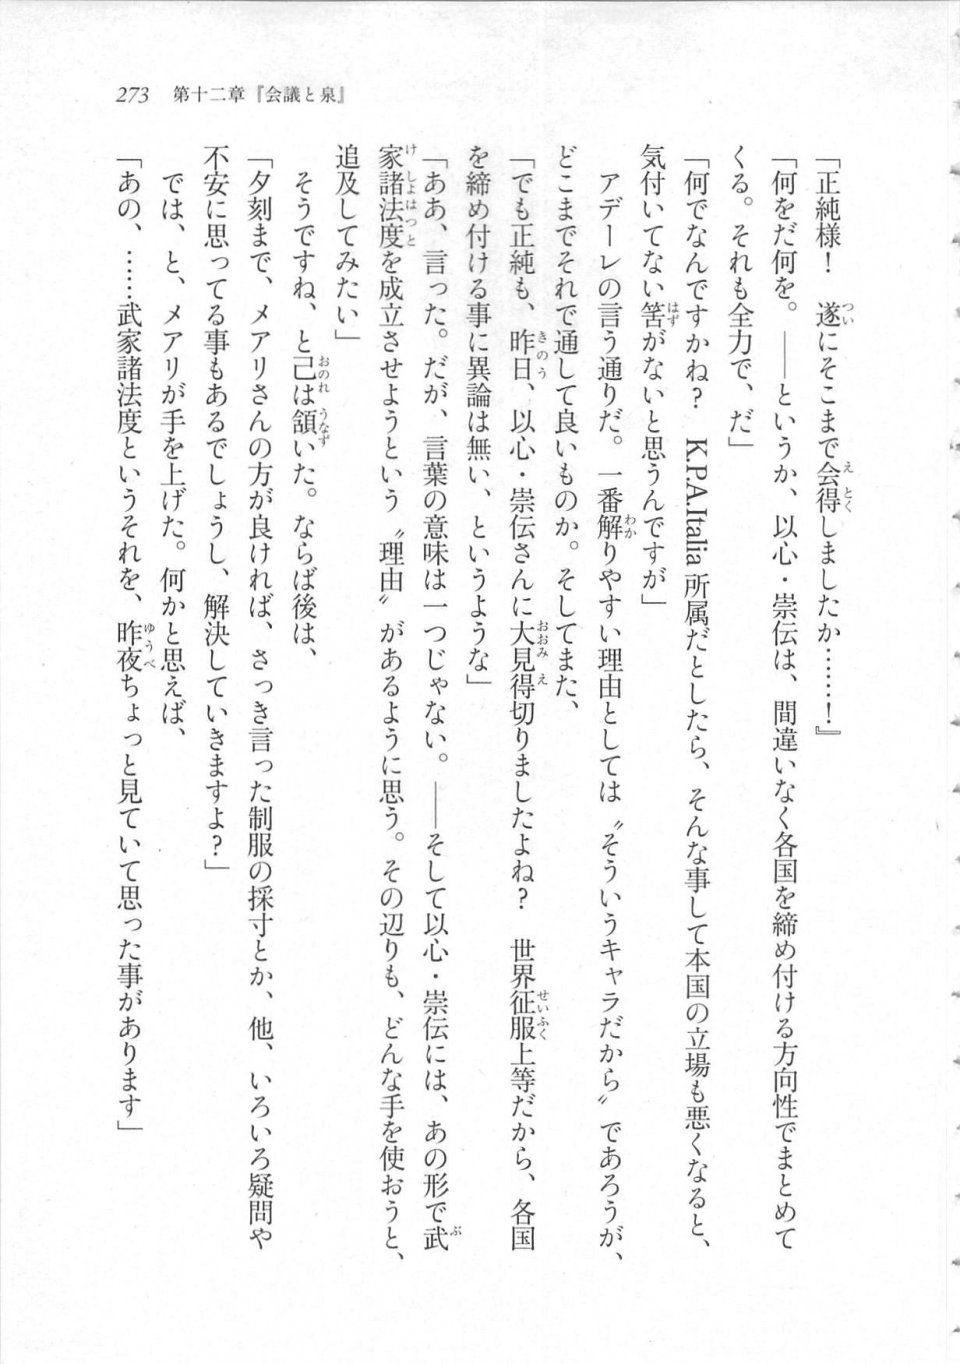 273　第十二章『会議と泉』
「正純様！　遂にそこまで会得しましたか……！』
「何をだ何を。――というか、以心・崇伝は、間違いなく各国を締め付ける方向性でまとめて
くる。それも全力で、だ」
「何でなんですかね？　K.P.A.Italia 所属だとしたら、そんな事して本国の立場も悪くなると、
気付いてない筈がないと思うんですが」
　アデーレの言う通りだ。一番解りやすい理由としては〝そういうキャラだから〟であろうが、
どこまでそれで通して良いものか。そしてまた、
「でも正純も、昨日、以心・崇伝さんに大見得切りましたよね？　世界征服上等だから、各国
を締め付ける事に異論は無い、というような」
「ああ、言った。だが、言葉の意味は一つじゃない。――そして以心・崇伝には、あの形で武
家諸法度を成立させようという〝理由〟があるように思う。その辺りも、どんな手を使おうと、
追及してみたい」
　そうですね、と己は頷いた。ならば後は、
「夕刻まで、メアリさんの方が良ければ、さっき言った制服の採寸とか、他、いろいろ疑問や
不安に思ってる事もあるでしょうし、解決していきますよ？」
　では、と、メアリが手を上げた。何かと思えば、
「あの、……武家諸法度というそれを、昨夜ちょっと見ていて思った事があります」